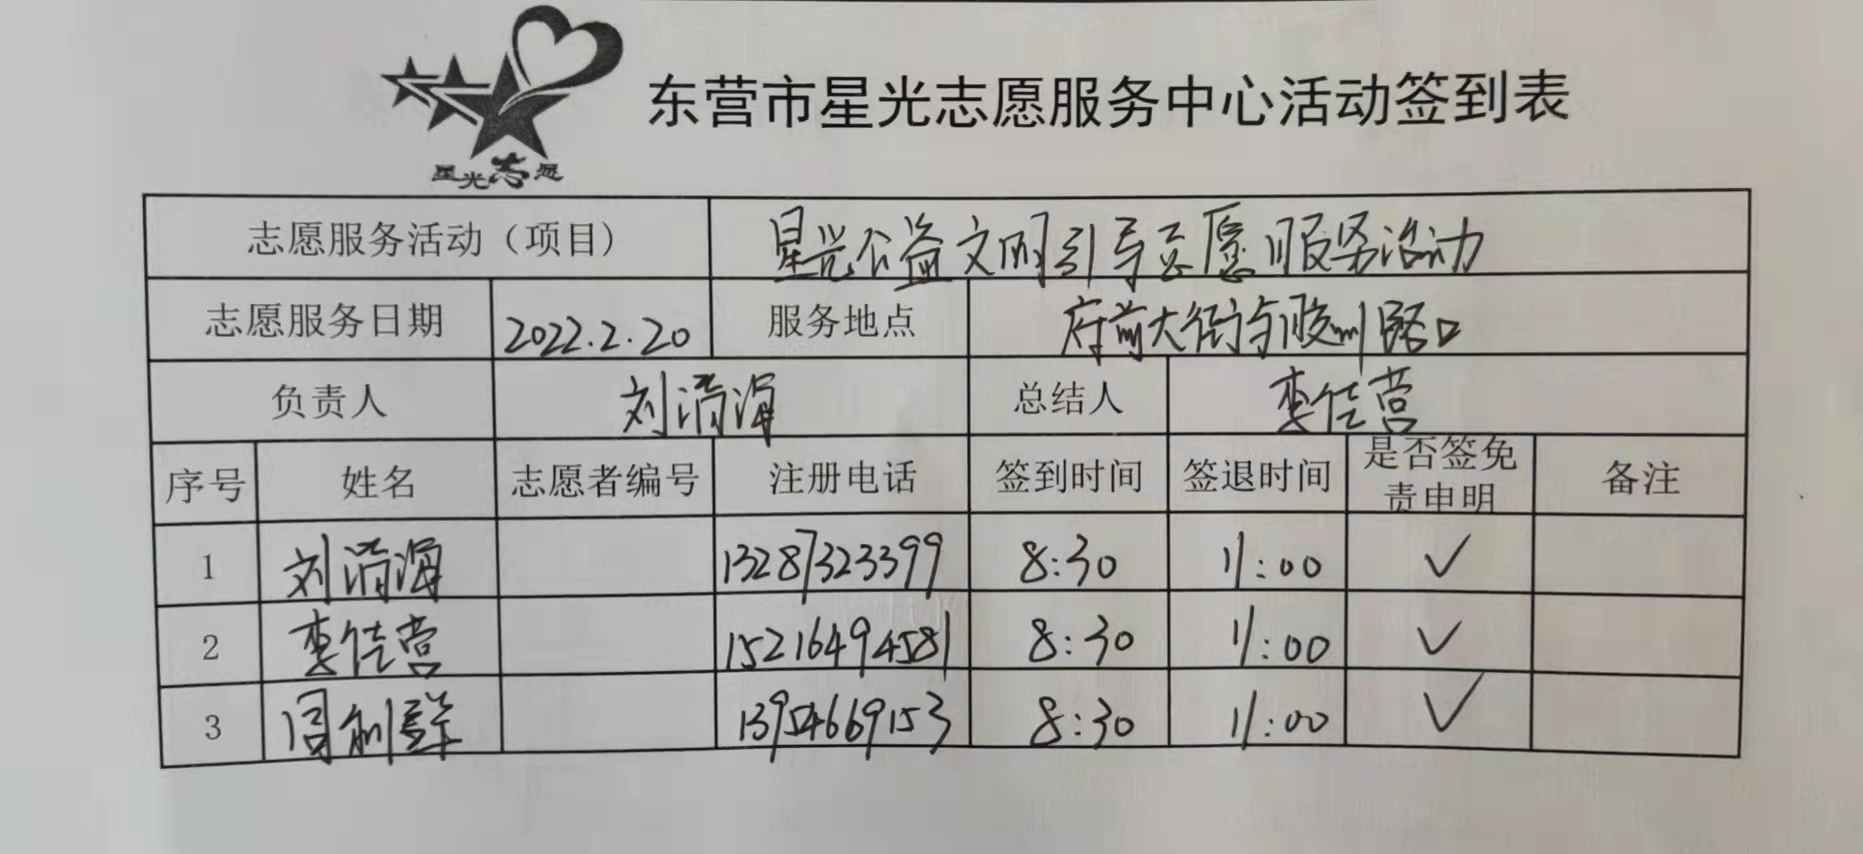 星光志愿
东营市星光志愿服务中心活动签到表
志愿服务活动（项目） 星光公益文明引导志愿服务活动
志愿服务日期 2022.2.20 服务地点 府前大街与胶州路口
负责人 刘清海 总结人 李佳营
序号 姓名 志愿者编号 注册电话 签到时间 签退时间 是否签免责申明 备注
1 刘清海 13287323399 8:30 11:00 ✓
2 李佳营 15216494581 8:30 11:00 ✓
3 周利群 13954669153 8:30 11:00 ✓